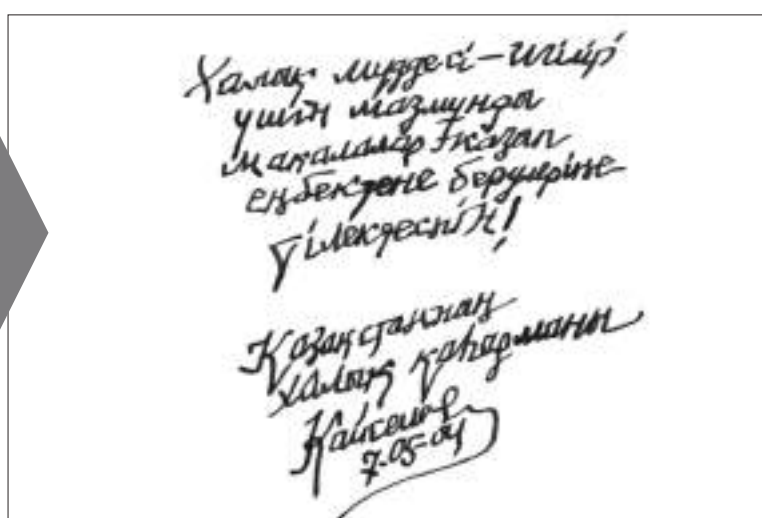 Халық мүддесі – игілігі
үшін мазмұнды
мақалалар жазып
еңбектене берулеріңе
тілектеспін!
Қазақстанның
халық қаһарманы
Қайсенов
7-05-04